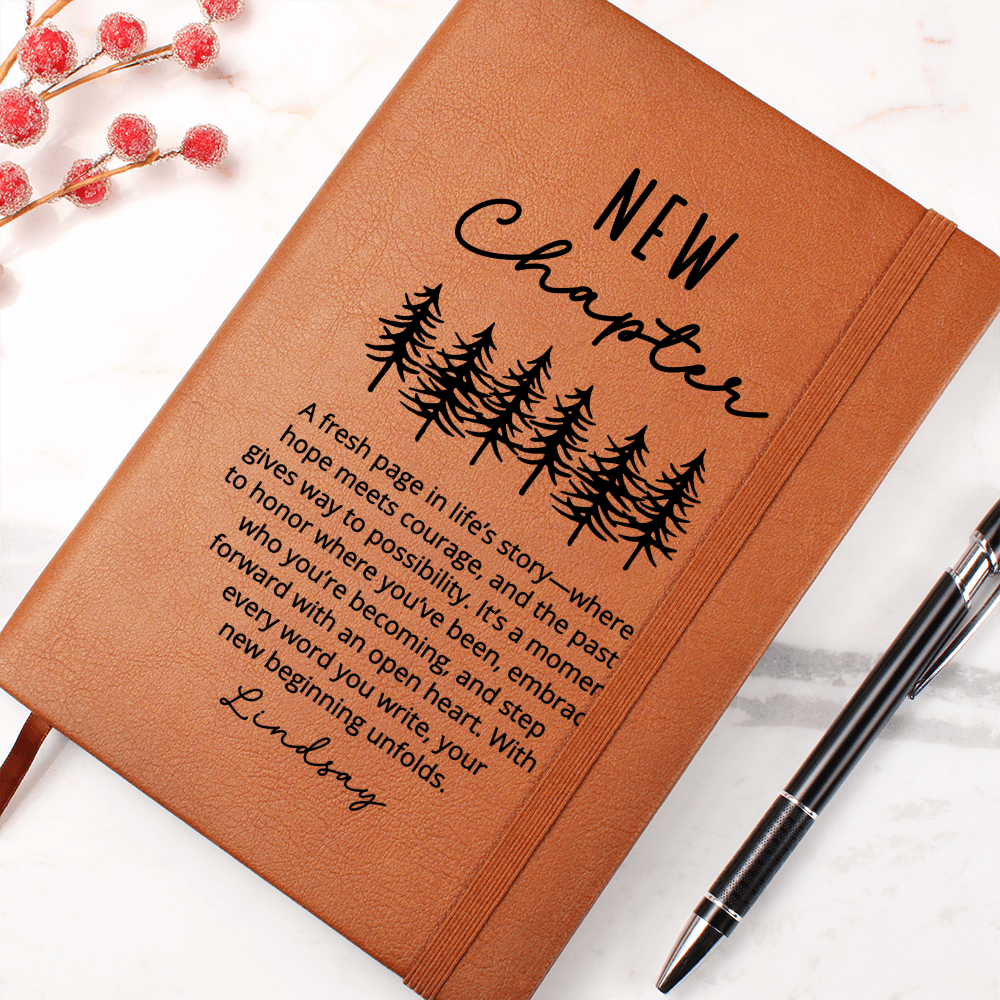 NEW
Chapter
A fresh page in life's story—where
hope meets courage, and the past
gives way to possibility. It's a momen
to honor where you've been, embrac
who you're becoming, and step
forward with an open heart. With
every word you write, your
new beginning unfolds.
Lindsay